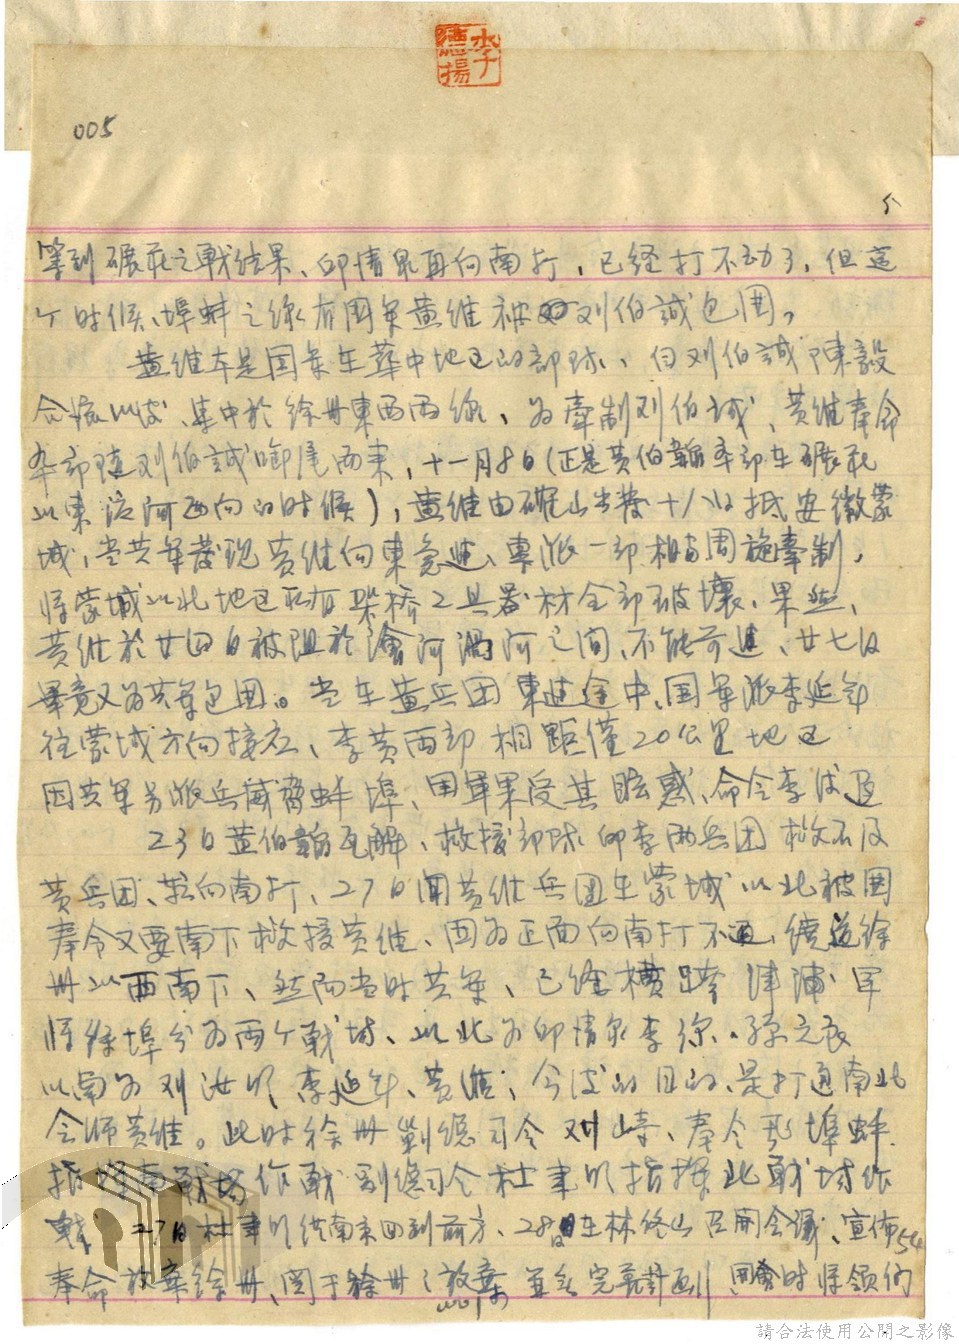 李德揚
005
5
等到碾莊之戰結果、邱情泉再向南打，已经打不动了，但這
个时候、埠蚌之線有国军黃維被刘伯誠包围。
黃維本是国军在華中地区的部隊、自刘伯誠陳毅
合流以後、集中於徐州東西兩線、为牽制刘伯誠、黃維奉命
率部隨刘伯誠啣尾而東，十一月8日(正是黃伯韜率部在碾莊
以東渡河西向的时候)，黃維由確山出發十八日抵安徽蒙
城，当共军發現黃維向東急進、專派一部相与周旋牽制，
將蒙城以北地区所有架橋工具器材全部破壞、果然、
黃維於廿四日被阻於澮河渦河之间、不能前進、廿七日
畢竟又为共军包围。当在黃兵团東進途中、国军派李延年
往蒙城方向接应、李黃两部相距僅20公里地区
因共军另派兵威脅蚌埠、国軍果受其眩惑、命令李後退
23日黃伯韜瓦解、救援部隊邱李兩兵团救不及
黃兵团、轉向南打、27日聞黃維兵团在蒙城以北被围
奉令又要南下救援黃維、因为正面向南打不通、繞道徐
州以西南下、然而当时共军、已经橫跨津浦
將徐埠分为两个戰场、以北为邱情泉李弥、孫元良
以南为刘汝明李延年、黃維、今後的目的、是打通南北
会师黃維。此时徐州剿總司令刘峙、奉令飛埠蚌
指揮南戰场作戰副總司令杜聿明指揮北戰场作
戰 27日杜聿明從南京回到前方、28日在林佟山召開会議、宣佈
奉命放棄徐州、関于徐州之放棄並無完整計画、開會时將領们
54
請合法使用公開之影像